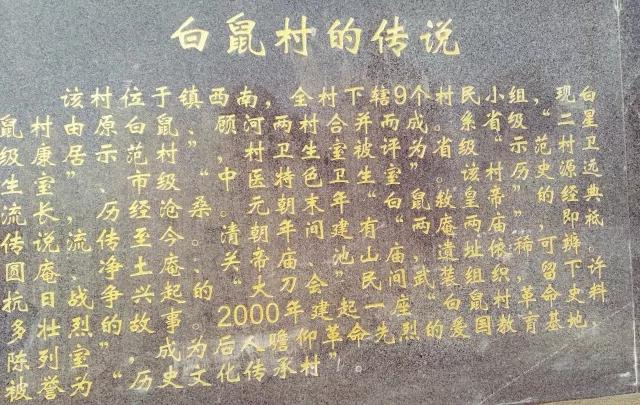 白鼠村的传说
该村位于镇西南，全村下辖9个村民小组，现白
鼠村由原白鼠、顾河两村合并而成。系省级“二星
级康居示范村”，村卫生室被评省“示范村卫
生室”、市级“中医特色卫生室”。该村历史源远
流长，历经沧桑。元朝末年“白鼠救皇帝”的经典
传说流传至今。清朝年间，建有“两庵两庙”，即祗
圆庵、净土庵、关帝庙、池山庙，遗址依稀可辨。
抗日战争兴起的“大刀会”民间武装组织，留下许
多壮烈的故事。2000年建起一座“白鼠村革命史料
陈列室”，成为后人瞻仰革命先烈的爱国教育基地，
被誉为“历史文化传承村”。